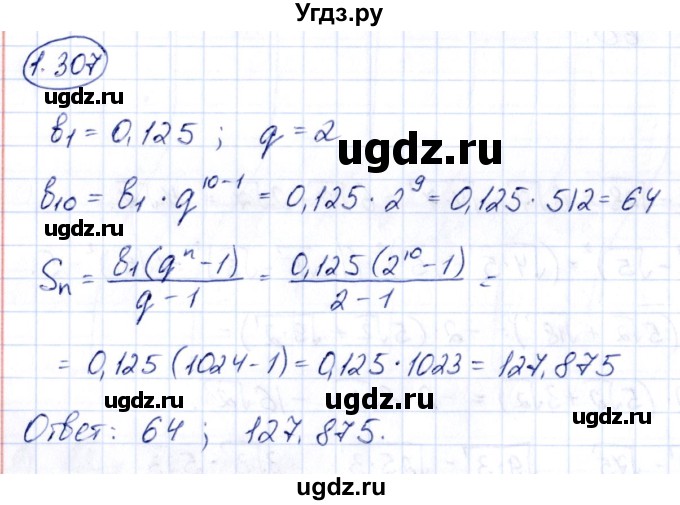 Угдз.ру
1.307
ugdz.ru ugdz.ru
в₁ = 0,125 ; q = 2
ugdz.ru
в₁₀ = в₁ · q¹⁰⁻¹ = 0,125 · 2⁹ = 0,125 · 512 = 64
ugdz.ru ugdz.ru
Sₙ = в₁(qⁿ – 1) / q – 1 = 0,125(2¹⁰ – 1) / 2 – 1 =
ugdz.ru
= 0,125 (1024 – 1) = 0,125 · 1023 = 127,875
ugdz.ru ugdz.ru
Ответ: 64 ; 127,875.
ugdz.ru
ugdz.ru